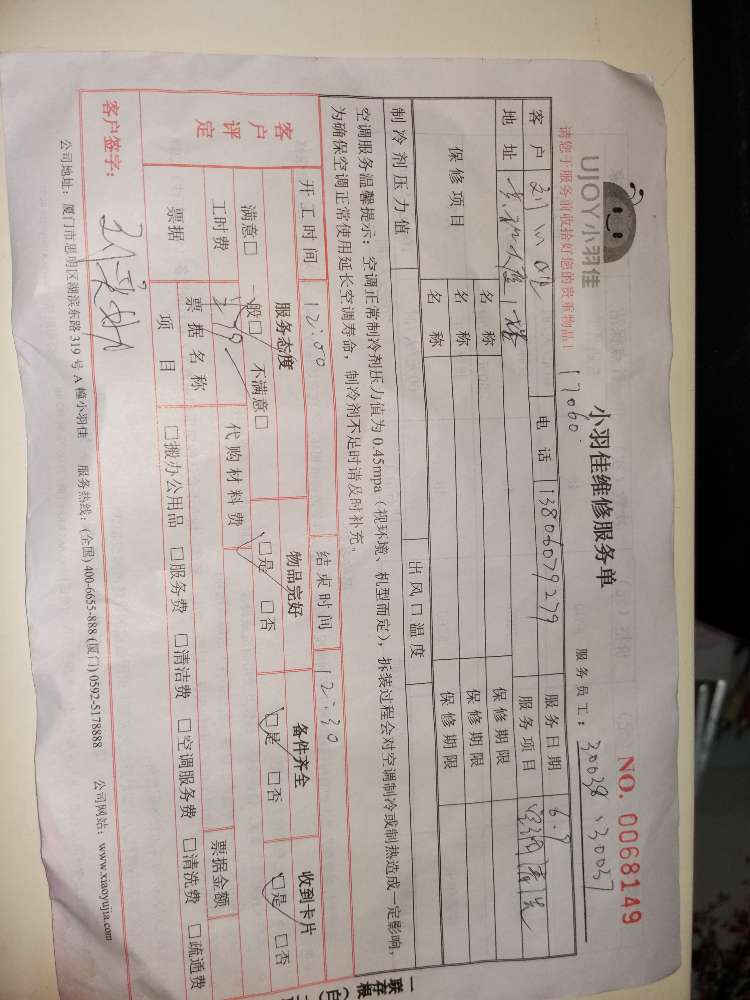 UJOY小羽佳
小羽佳维修服务单
NO. 0068149
请您于服务前收拾好您的贵重物品！
17060.
服务员工：30038、30037
客户 电话 13806079279 服务日期 6.9
地址 服务项目 空调清洗
保修项目 名称 保修期限
名称 保修期限
名称 保修期限
制冷剂压力值 出风口温度
空调服务温馨提示：空调正常制冷剂压力值为 0.45mpa（视环境、机型而定），拆装过程会对空调制冷或制热造成一定影响，
为确保空调正常使用延长空调寿命，制冷剂不足时请及时补充。
开工时间 12:00 结束时间 12:30
客户评定 服务态度 物品完好 备件齐全 收到卡片
满意□ 一般□ 不满意□ □是 □否 □是 □否 □是 □否
工时费 代购材料费
票据 票据名称 票据金额
项目 □搬办公用品 □服务费 □清洁费 □空调服务费 □清洗费 □疏通费
客户签字：
公司地址：厦门市思明区湖滨东路 319 号 A 幢小羽佳 服务热线：(全国) 400-6655-888 (厦门) 0592-5178888 公司网站：www.xiaoyujia.com